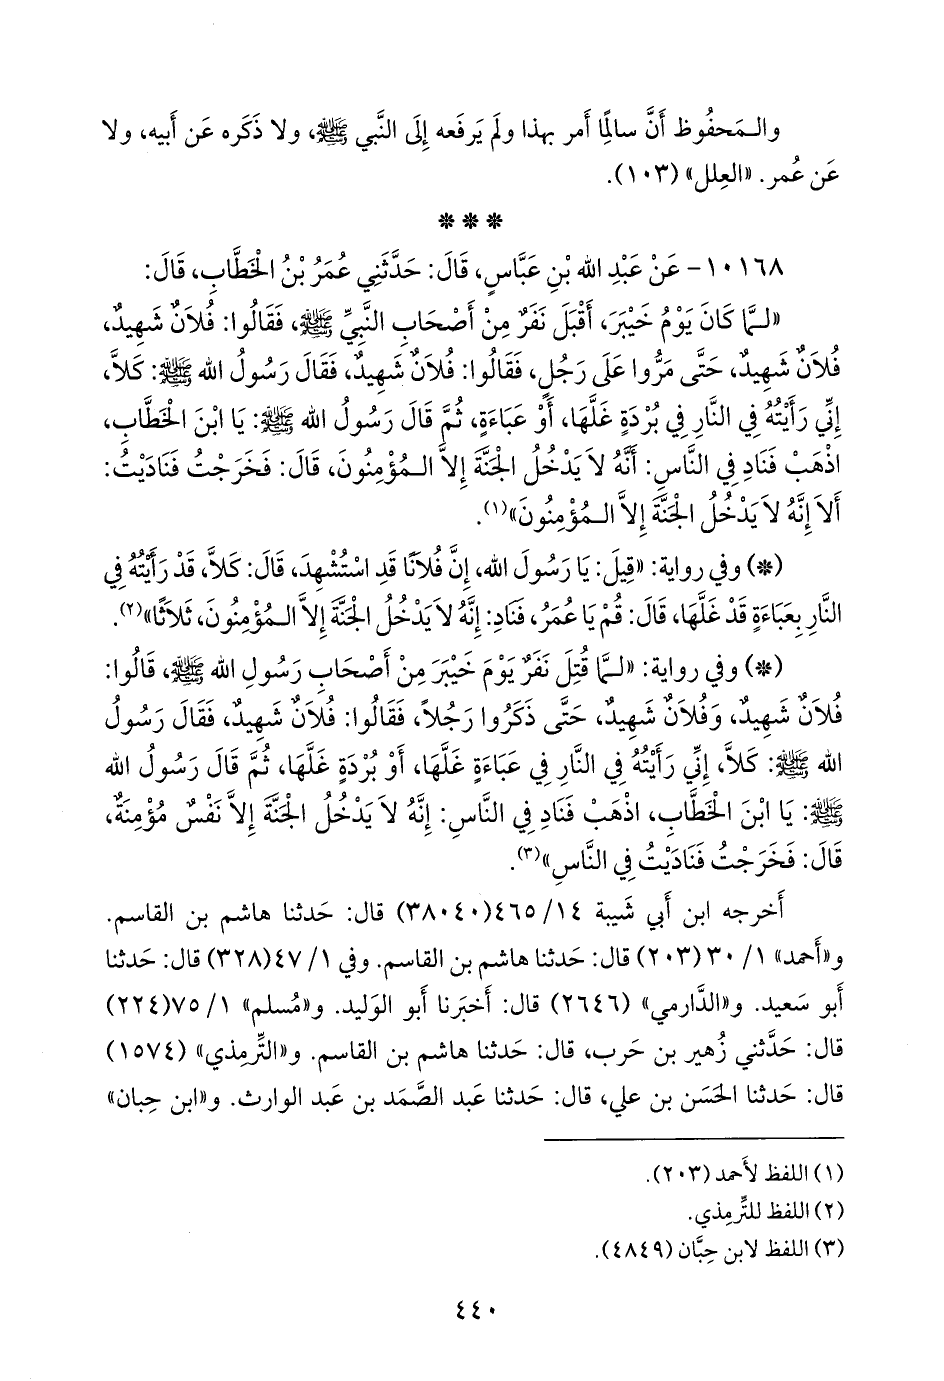 والـمَحفُوظ أَنَّ سالِمًا أَمر بهذا ولَم يَرفَعه إِلَى النَّبي ﷺ، ولا ذَكَره عَن أَبيه، ولا
عَن عُمر. «العِلل» (١٠٣).
* * *
١٠١٦٨ - عَنْ عَبْدِ الله بْنِ عَبَّاسٍ، قَالَ: حَدَّثَنِي عُمَرُ بْنُ الْخَطَّابِ، قَالَ:
«لـمَّا كَانَ يَوْمُ خَيْبَرَ، أَقْبَلَ نَفَرٌ مِنْ أَصْحَابِ النَّبِيِّ ﷺ، فَقَالُوا: فُلاَنٌ شَهِيدٌ،
فُلاَنٌ شَهِيدٌ، حَتَّى مَرُّوا عَلَى رَجُلٍ، فَقَالُوا: فُلاَنٌ شَهِيدٌ، فَقَالَ رَسُولُ الله ﷺ: كَلاَّ،
إِنِّي رَأَيْتُهُ فِي النَّارِ فِي بُرْدَةٍ غَلَّهَا، أَوْ عَبَاءَةٍ، ثُمَّ قَالَ رَسُولُ الله ﷺ: يَا ابْنَ الْخَطَّابِ،
اذْهَبْ فَنَادِ فِي النَّاسِ: أَنَّهُ لاَ يَدْخُلُ الْجَنَّةَ إِلاَّ الـمُؤْمِنُونَ، قَالَ: فَخَرَجْتُ فَنَادَيْتُ:
أَلاَ إِنَّهُ لاَ يَدْخُلُ الْجَنَّةَ إِلاَّ الـمُؤْمِنُونَ»(١).
(*) وفي رواية: «قِيلَ: يَا رَسُولَ الله، إِنَّ فُلاَنًا قَدِ اسْتُشْهِدَ، قَالَ: كَلاَّ، قَدْ رَأَيْتُهُ فِي
النَّارِ بِعَبَاءَةٍ قَدْ غَلَّهَا، قَالَ: قُمْ يَا عُمَرُ، فَنَادِ: إِنَّهُ لاَ يَدْخُلُ الْجَنَّةَ إِلاَّ الـمُؤْمِنُونَ، ثَلاَثًا»(٢).
(*) وفي رواية: «لـمَّا قُتِلَ نَفَرٌ يَوْمَ خَيْبَرَ مِنْ أَصْحَابِ رَسُولِ الله ﷺ، قَالُوا:
فُلاَنٌ شَهِيدٌ، وَفُلاَنٌ شَهِيدٌ، حَتَّى ذَكَرُوا رَجُلاً، فَقَالُوا: فُلاَنٌ شَهِيدٌ، فَقَالَ رَسُولُ
الله ﷺ: كَلاَّ، إِنِّي رَأَيْتُهُ فِي النَّارِ فِي عَبَاءَةٍ غَلَّهَا، أَوْ بُرْدَةٍ غَلَّهَا، ثُمَّ قَالَ رَسُولُ الله
ﷺ: يَا ابْنَ الْخَطَّابِ، اذْهَبْ فَنَادِ فِي النَّاسِ: إِنَّهُ لاَ يَدْخُلُ الْجَنَّةَ إِلاَّ نَفْسٌ مُؤْمِنَةٌ،
قَالَ: فَخَرَجْتُ فَنَادَيْتُ فِي النَّاسِ»(٣).
أَخرجه ابن أَبي شَيبة ١٤/ ٤٦٥(٣٨٠٤٠) قال: حَدثنا هاشم بن القاسم.
و«أَحمد» ١/ ٣٠(٢٠٣) قال: حَدثنا هاشم بن القاسم. وفي ١/ ٤٧(٣٢٨) قال: حَدثنا
أَبو سَعيد. و«الدَّارمي» (٢٦٤٦) قال: أَخبَرنا أَبو الوَليد. و«مُسلم» ١/ ٧٥(٢٢٤)
قال: حَدَّثني زُهير بن حَرب، قال: حَدثنا هاشم بن القاسم. و«التِّرمِذي» (١٥٧٤)
قال: حَدثنا الحَسَن بن علي، قال: حَدثنا عَبد الصَّمَد بن عَبد الوارث. و«ابن حِبان»
(١) اللفظ لأَحمد (٢٠٣).
(٢) اللفظ للتِّرمِذي.
(٣) اللفظ لابن حِبَّان (٤٨٤٩).
٤٤٠